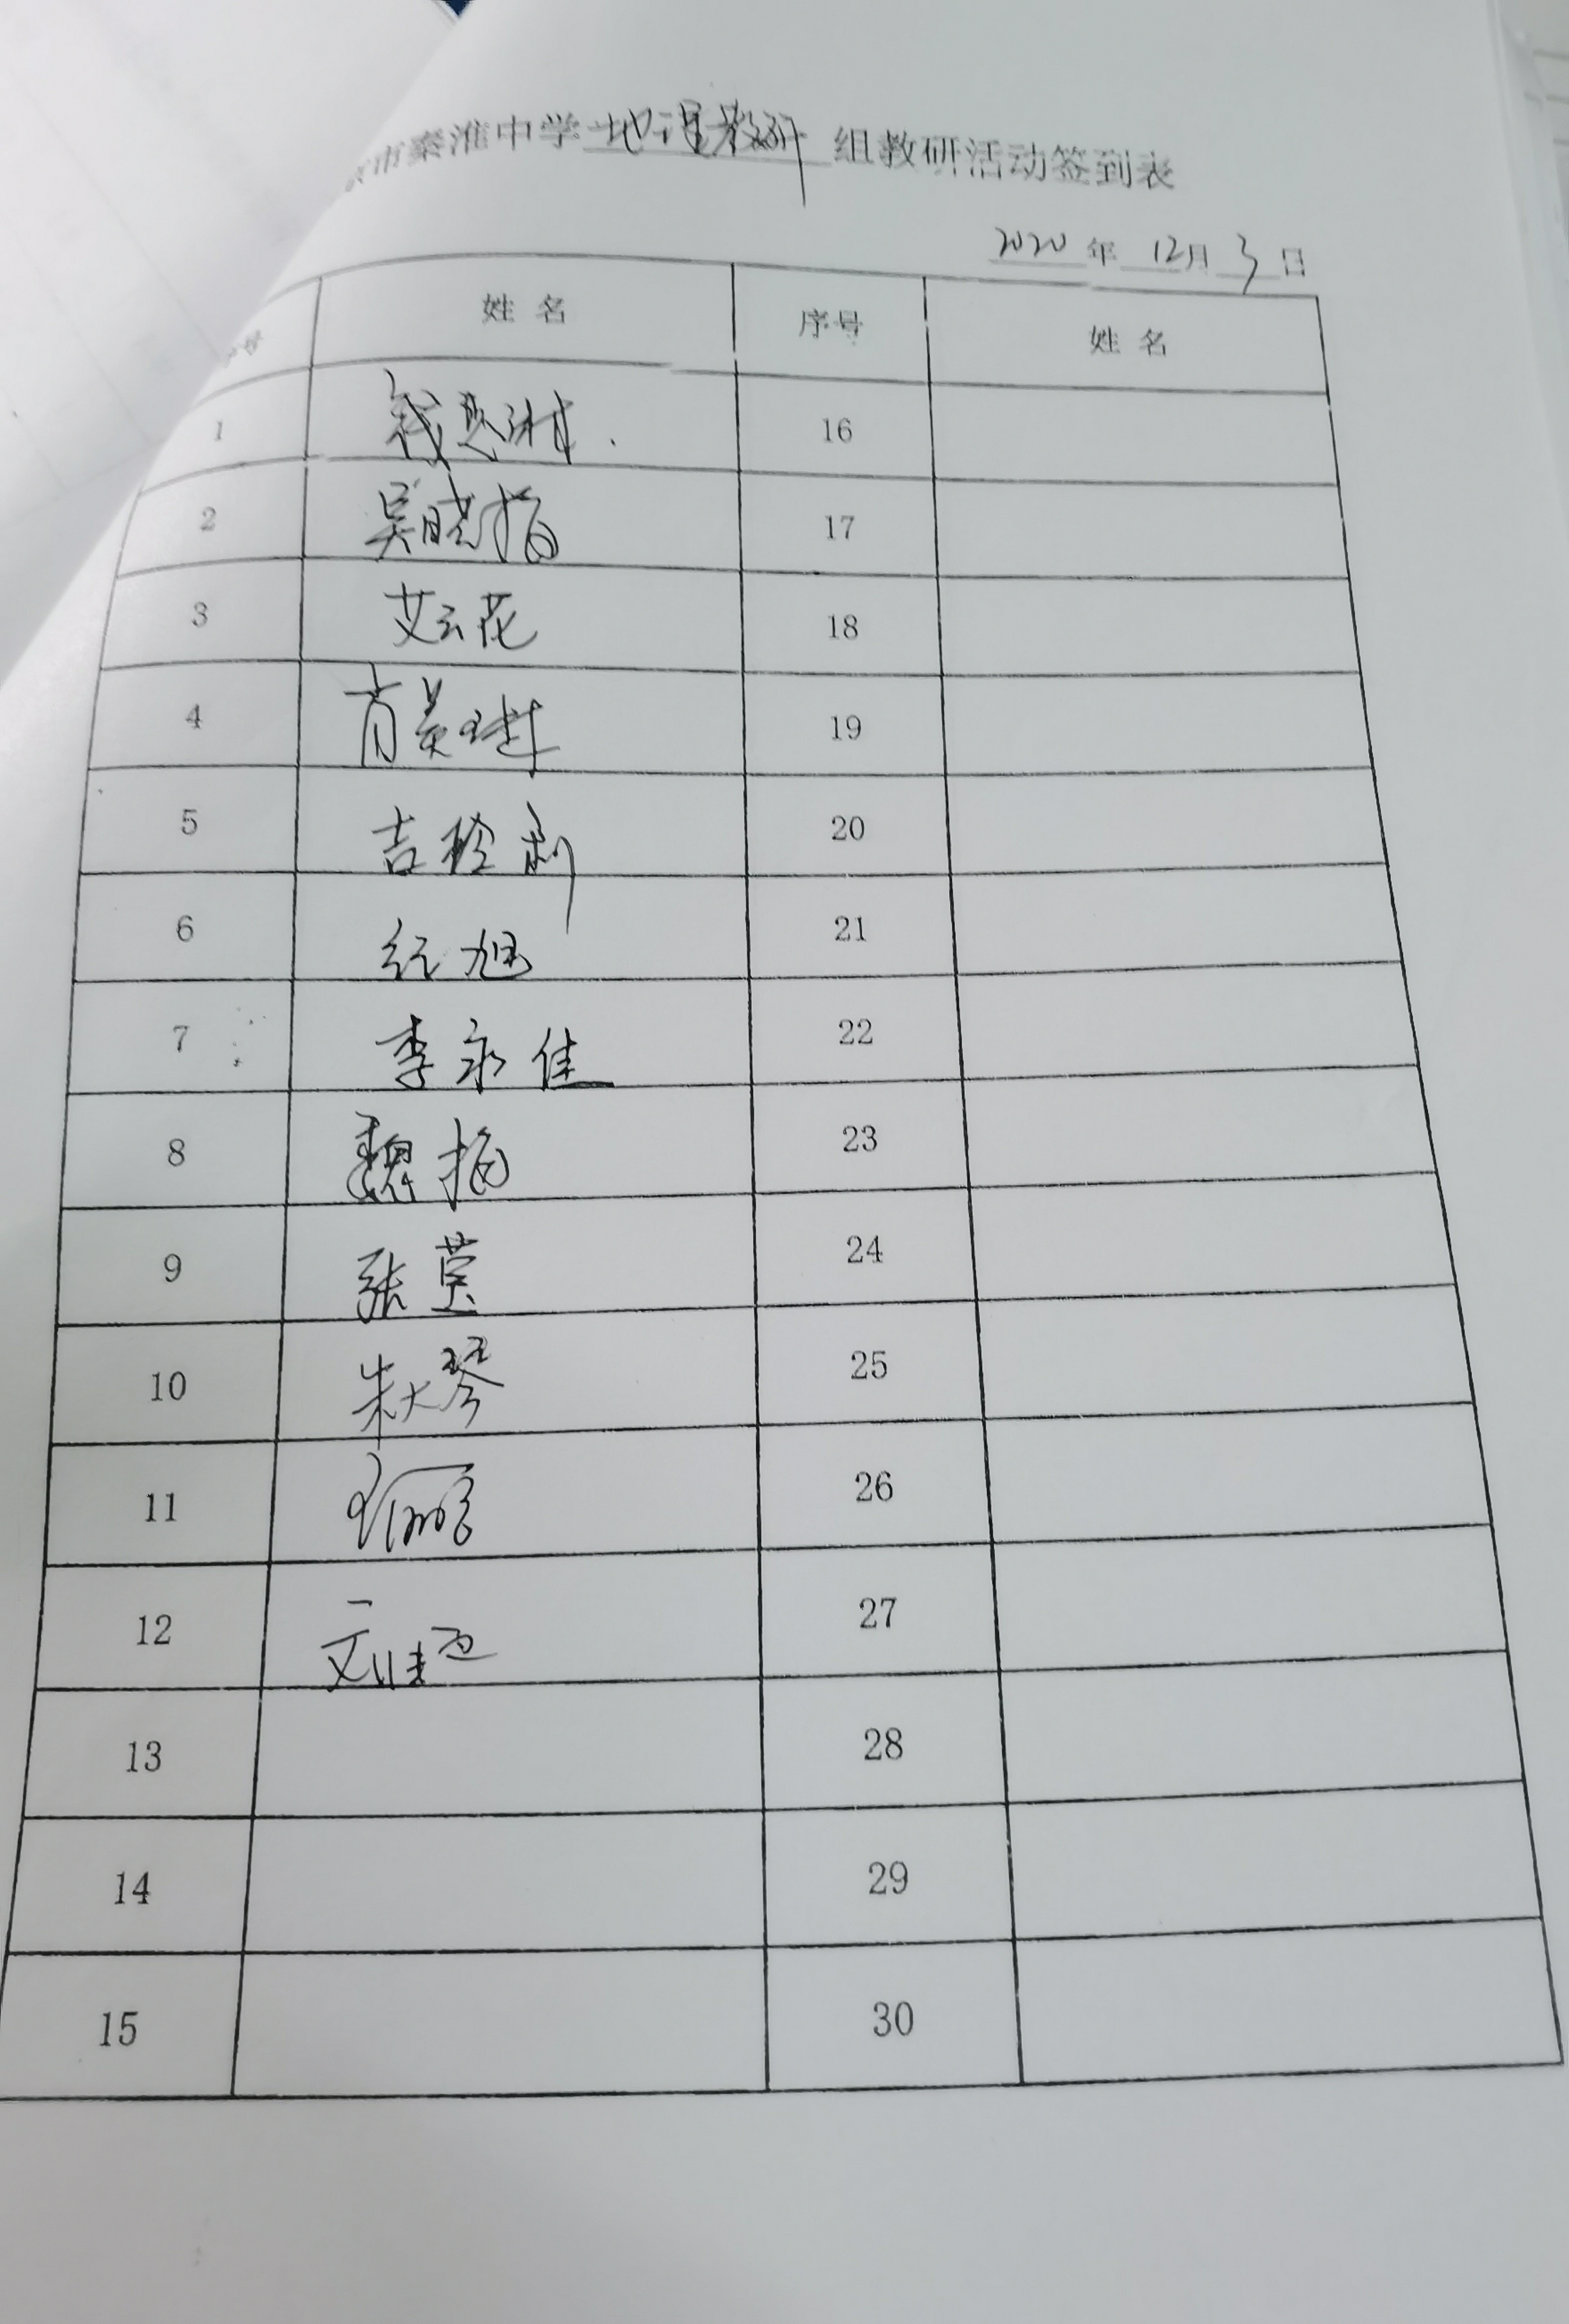 市秦淮中学 地理教研 组教研活动签到表
2020 年 12月 3 日
姓 名 序号 姓 名
1 16
2 吴晓梅 17
3 艾云花 18
4 肖美琎 19
5 吉玲利 20
6 纪旭 21
7 李永佳 22
8 魏梅 23
9 张 24
10 朱大琴 25
11 26
12 27
13 28
14 29
15 30